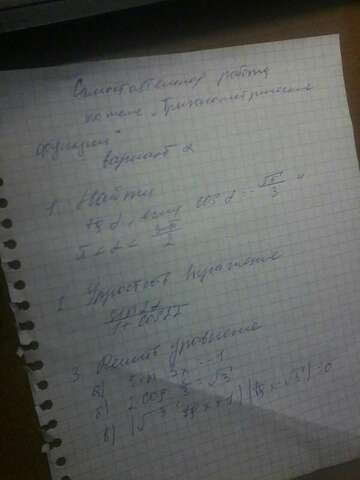 Самостоятельная работа
по теме „Тригонометрические
функции"
вариант 2
1. Найти
tg α, если cos α = -√5/3 и
π < α < 3π/2
2. Упростить выражение
sin2α/1+cos2α
3. Решить уравнение
а) sin 3x = -1
б) 2 cos x/3 = √3
в) (√3 tg x + 1)(tg x - √3) = 0